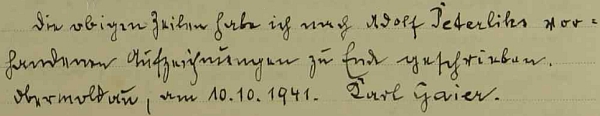 Die obigen Zeilen habe ich nach Adolf Peterliks vor=
handenen Aufzeichnungen zu Ende geschrieben.
Obermoldau, am 10.10.1941. Karl Gaier.